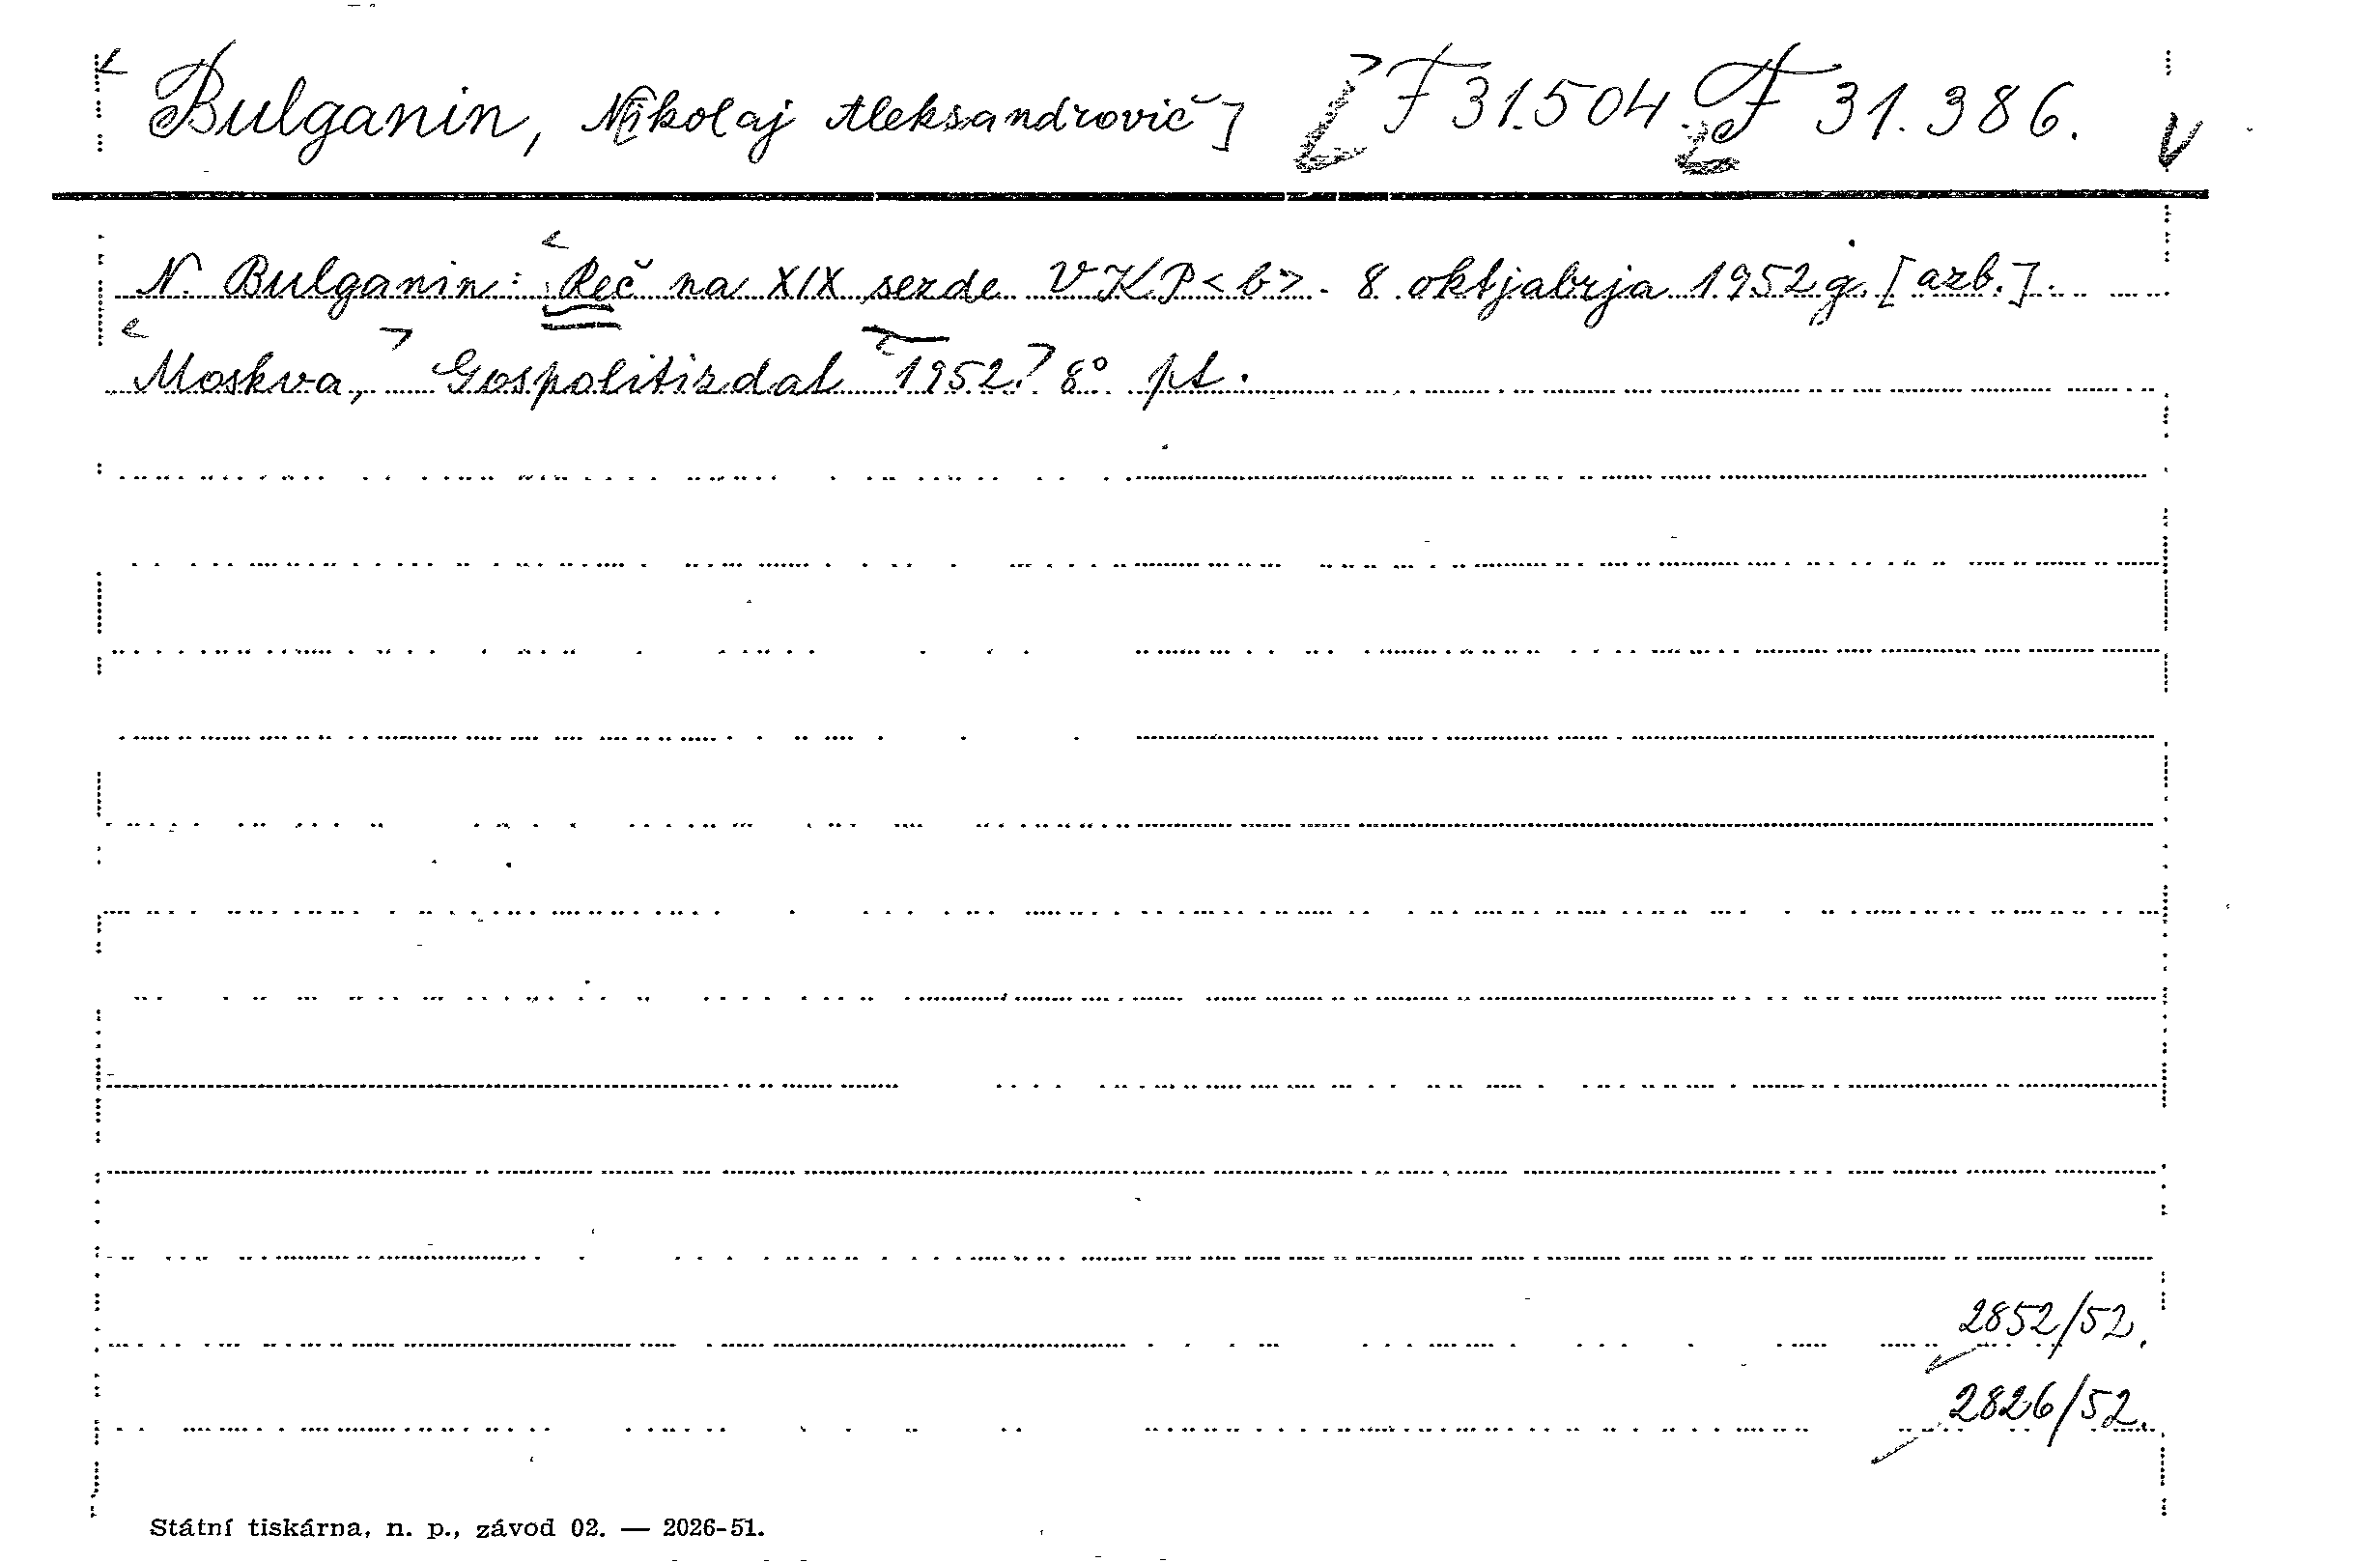 Bulganin, N[ikolaj Aleksandrovič] F 31.504. F 31.386.
N. Bulganin: Reč na XIX sezde VKP<b>. 8 oktjabrja 1952 g. [azb.].
Moskva, Gospolitizdat 1952. 8° pt.
2852/52.
2826/52.
Státní tiskárna, n. p., závod 02. — 2026-51.